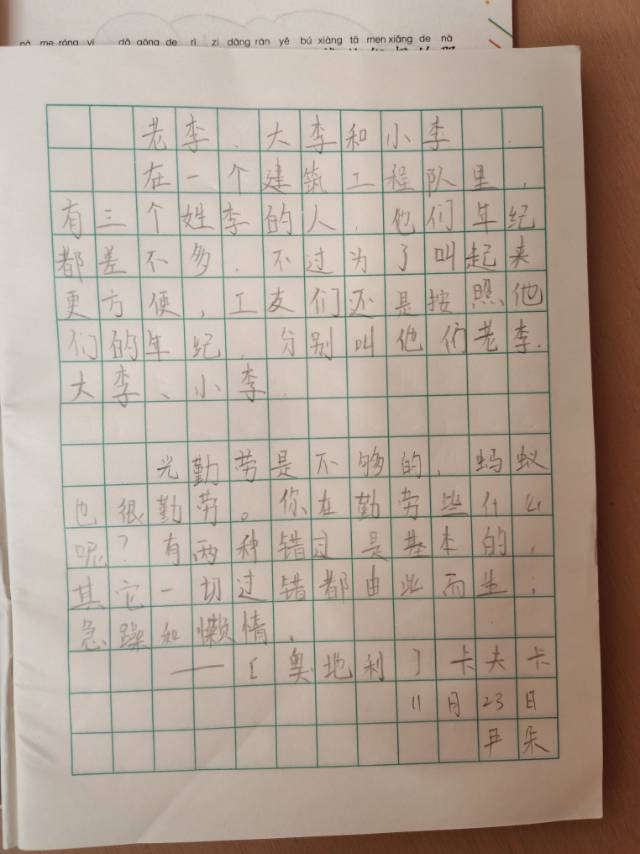 nà me róng yì dǎ gōng de rì zi dāng rán yě bú xiàng tā men xiǎng de nà
老李、大李和小李
在一个建筑工程队里，
有三个姓李的人，他们年纪
都差不多，不过为了叫起来
更方便，工友们还是按照他
们的年纪，分别叫他们老李、
大李、小李.
光勤劳是不够的，蚂蚁
也很勤劳。你在勤劳些什么
呢？有两种错过是基本的，
其它一切过错都由此而生：
急躁和懒惰.
——[奥地利]卡夫卡
11月23日